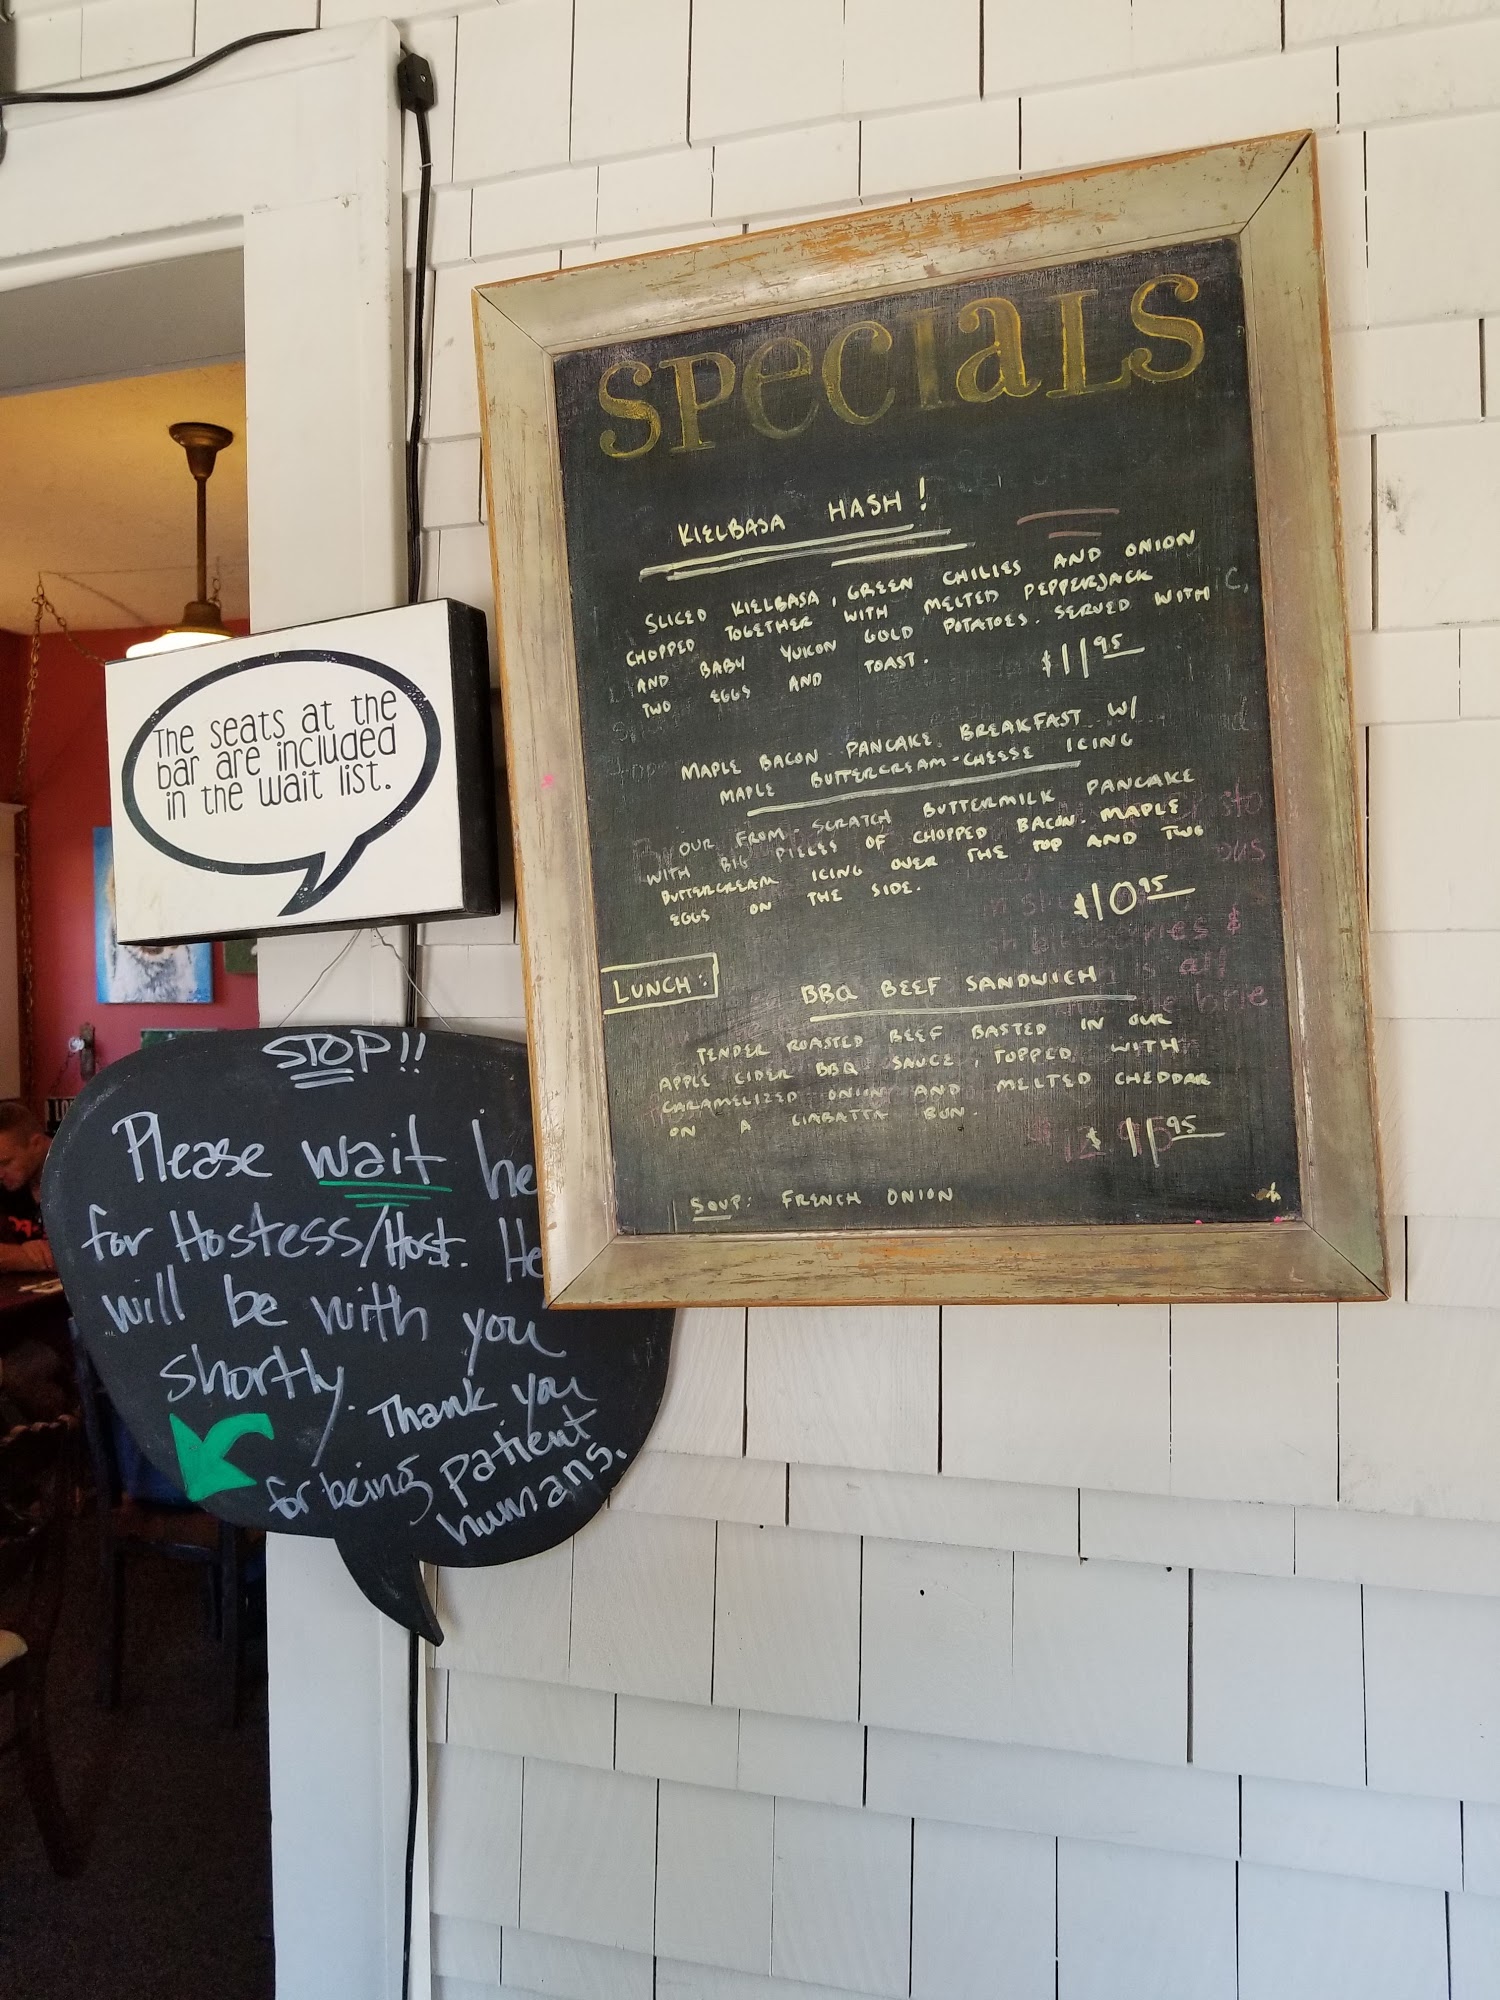 The seats at the
bar are included
in the wait list.
STOP!!
Please wait he
for Hostess/Host. He
will be with you
shortly.
Thank you
for being patient
humans.
SPECIALS
KIELBASA HASH!
SLICED KIELBASA, GREEN CHILIES AND ONION
CHOPPED TOGETHER WITH MELTED PEPPERJACK
AND BABY YUKON GOLD POTATOES. SERVED WITH
TWO EGGS AND TOAST. $11.95
MAPLE BACON PANCAKE BREAKFAST W/
MAPLE BUTTERCREAM-CHEESE ICING
OUR FROM-SCRATCH BUTTERMILK PANCAKE
WITH BIG PIECES OF CHOPPED BACON. MAPLE
BUTTERCREAM ICING OVER THE TOP AND TWO
EGGS ON THE SIDE. $10.95
LUNCH: BBQ BEEF SANDWICH
TENDER ROASTED BEEF BASTED IN OUR
APPLE CIDER BBQ SAUCE, TOPPED WITH
CARAMELIZED ONION AND MELTED CHEDDAR
ON A CIABATTA BUN. $11.95
SOUP: FRENCH ONION